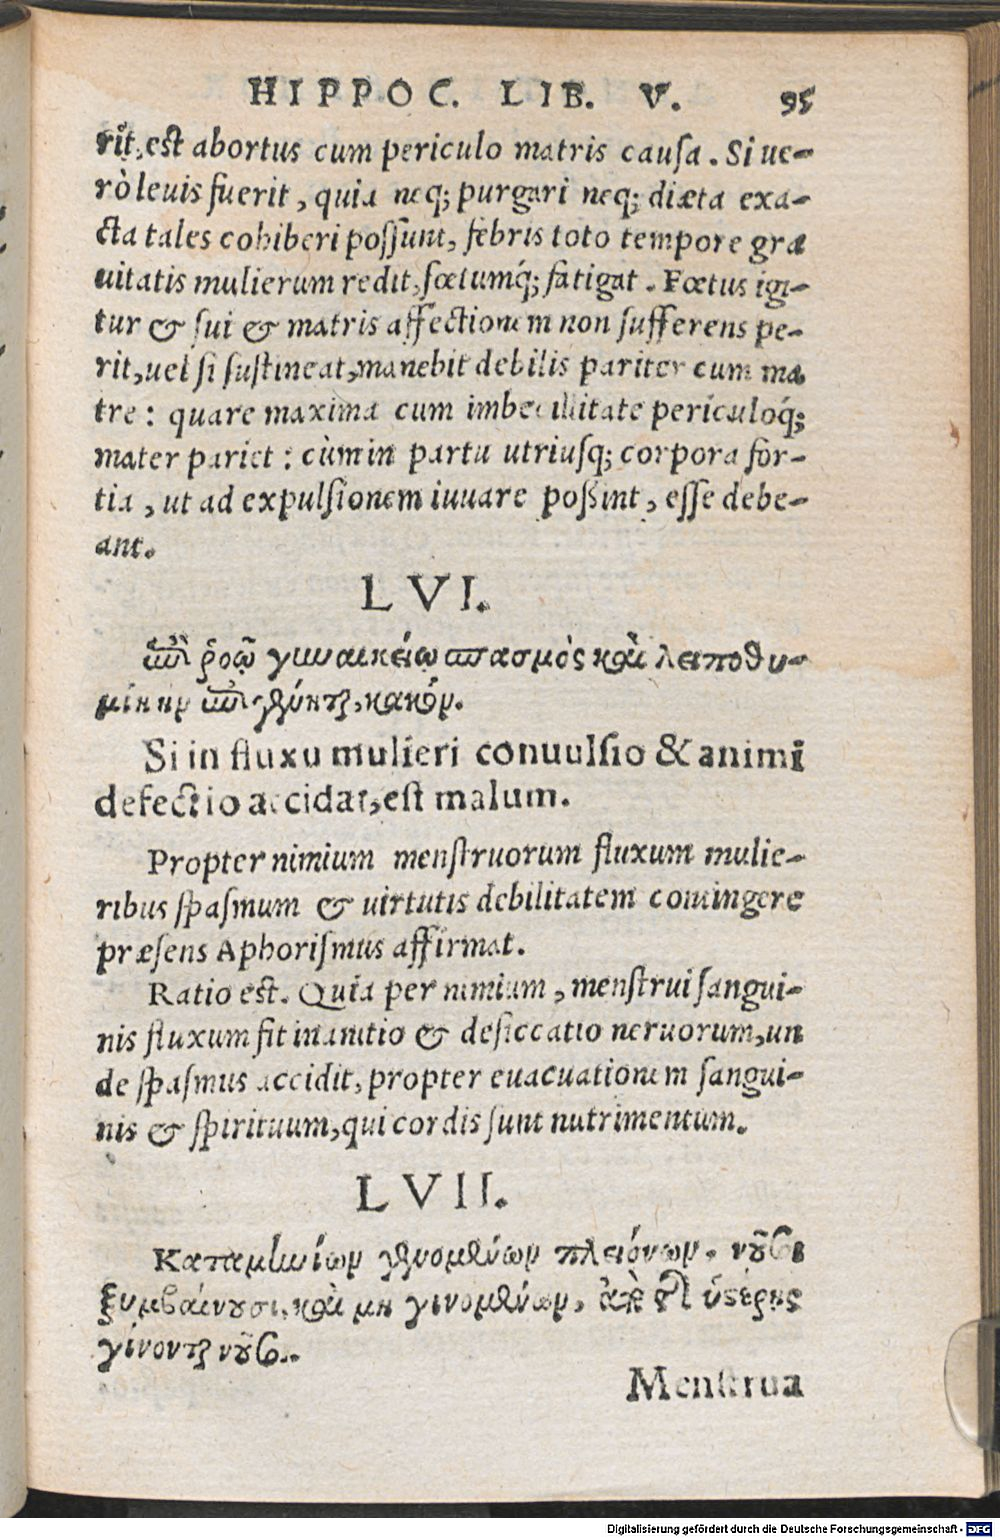 HIPPOC. LIB. V. 95
rit, est abortus cum periculo matris causa. Si ue-
rò leuis fuerit, quia neq; purgari neq; diæta exa-
cta tales cohiberi possunt, febris toto tempore gra
uitatis mulierum redit, fœtumq́; fatigat. Fœtus igi-
tur & sui & matris affectionem non sufferens pe-
rit, uel si sustineat, manebit debilis pariter cum ma
tre: quare maxima cum imbecillitate periculoq́;
mater pariet: cùm in partu utriusq; corpora for-
tia, ut ad expulsionem iuuare possint, esse debe-
ant.
LVI.
ἐπὶ ῥοῷ γυναικείῳ σπασμὸς καὶ λειποθυ-
μίη ην ἐπιγένηται, κακόν.
Si in fluxu mulieri conuulsio & animi
defectio accidat, est malum.
Propter nimium menstruorum fluxum mulie-
ribus spasmum & uirtutis debilitatem contingere
præsens Aphorismus affirmat.
Ratio est. Quia per nimium, menstrui sangui-
nis fluxum fit inanitio & desiccatio neruorum, un
de spasmus accidit, propter euacuationem sangui-
nis & spirituum, qui cordis sunt nutrimentum.
LVII.
Καταμηνίων γενομένων πλειόνων, νοῦσοι
ξυμβαίνουσι, καὶ μη γινομένων, ἀπὸ τῆς ὑστέρης
γίνονται νοῦσοι.
Menstrua
Digitalisierung gefördert durch die Deutsche Forschungsgemeinschaft - DFG